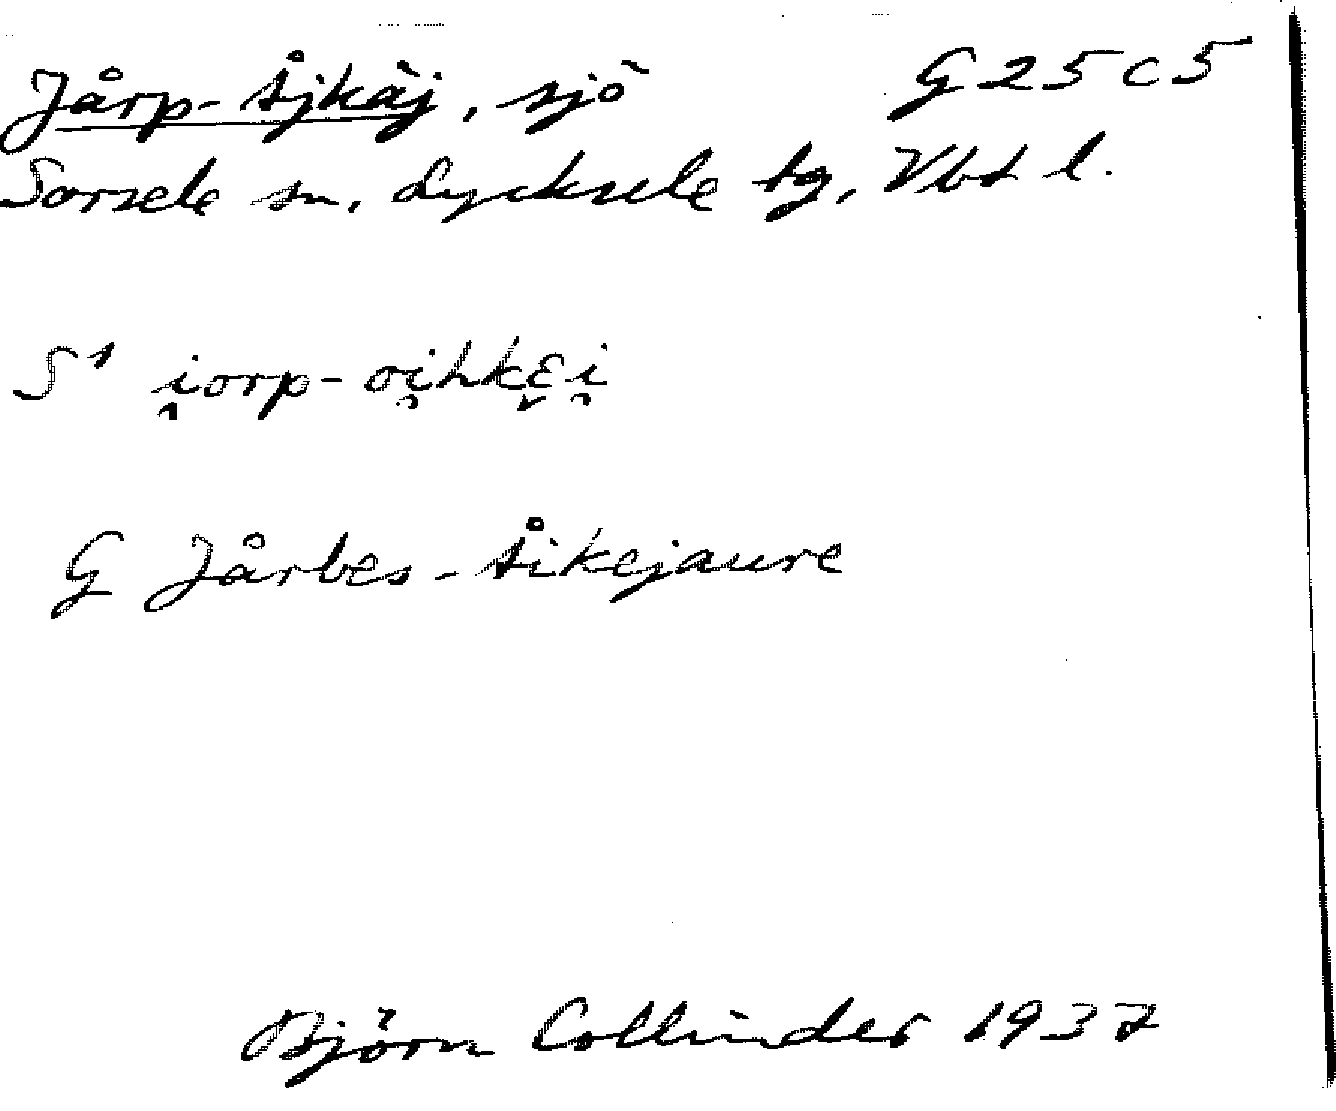 Jårp-åjkäj, sjö G25c5
Sorsele sn, Lycksele tg, Vbt l.
S¹ i̯orp-oi̯hkɛ̬i̯
G Jårbes-åikejaure
Björn Collinder 1937